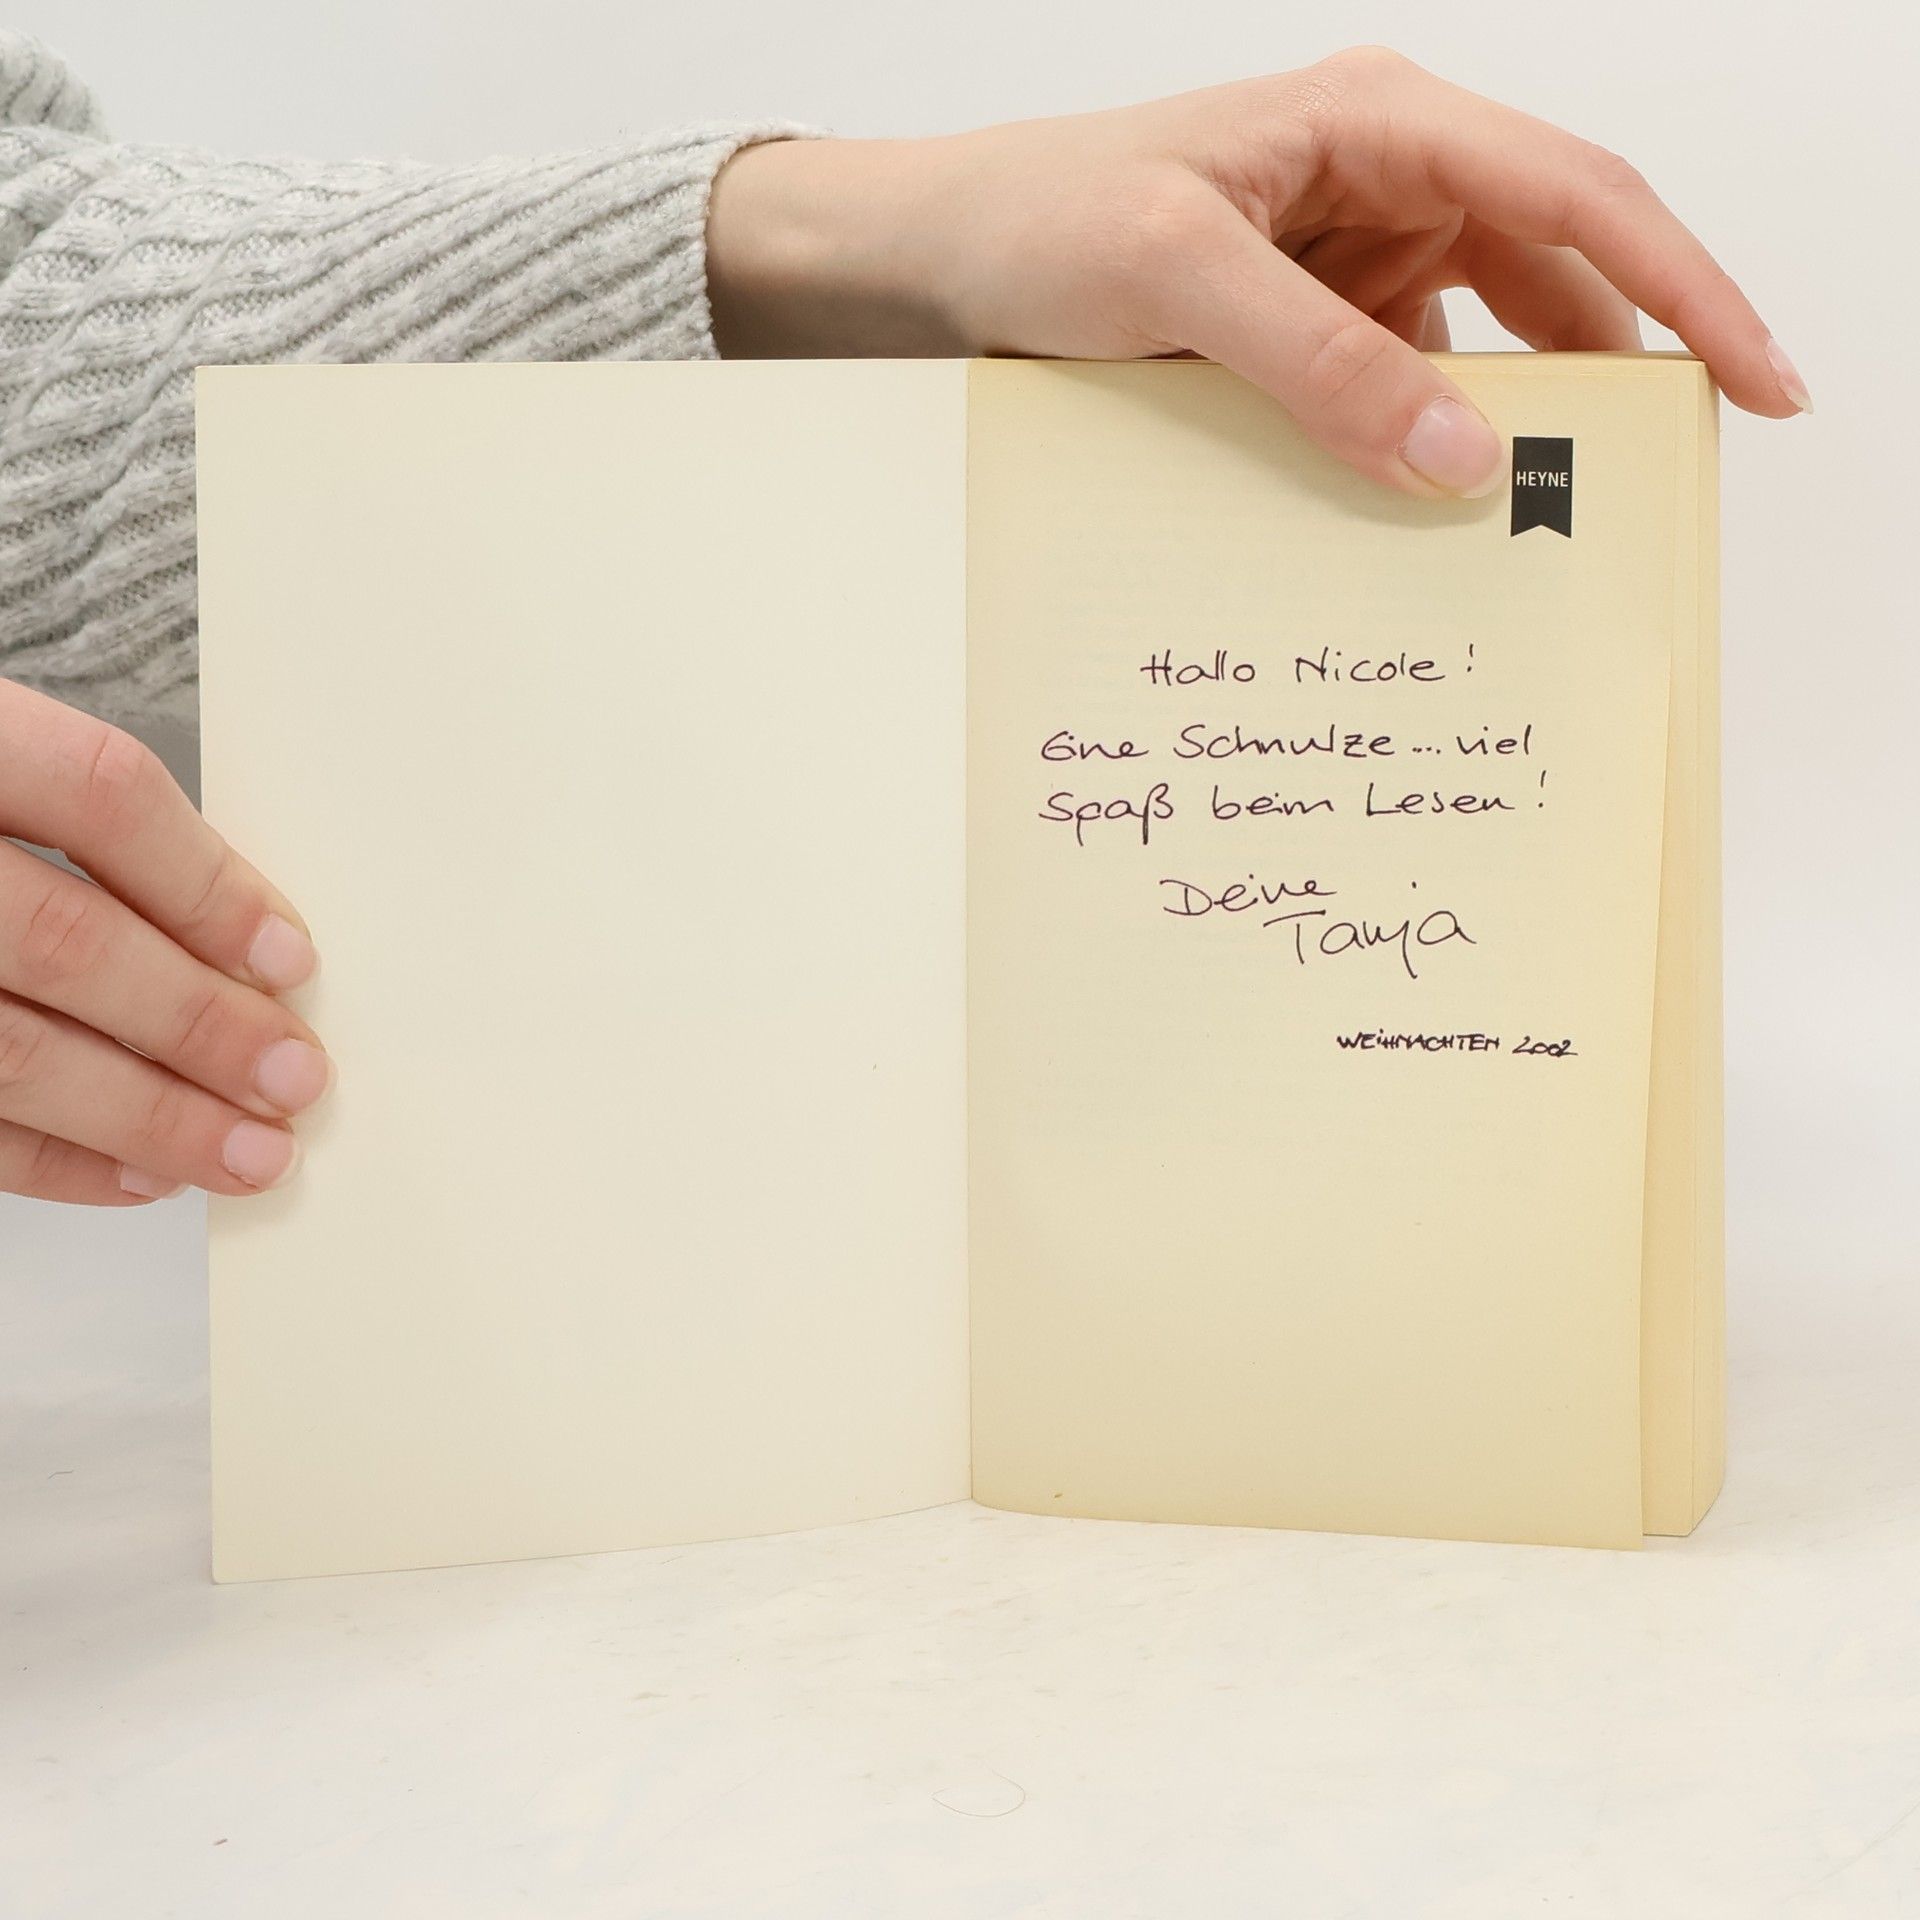 HEYNE
Hallo Nicole!
Eine Schnulze... viel
Spaß beim Lesen!
Deine
Tanja
WEIHNACHTEN 2002